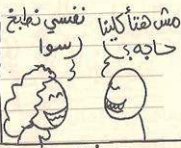 مش هتأكلينا
حاجه ؟
نفسي نطبخ
سوا